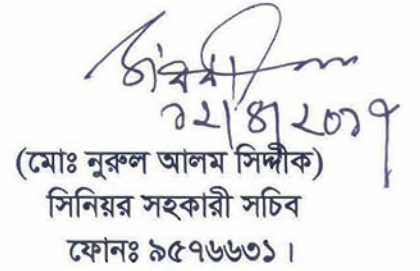 ১২|৪|২০১৭
(মোঃ নুরুল আলম সিদ্দীক)
সিনিয়র সহকারী সচিব
ফোনঃ ৯৫৭৬৬৩১ ।